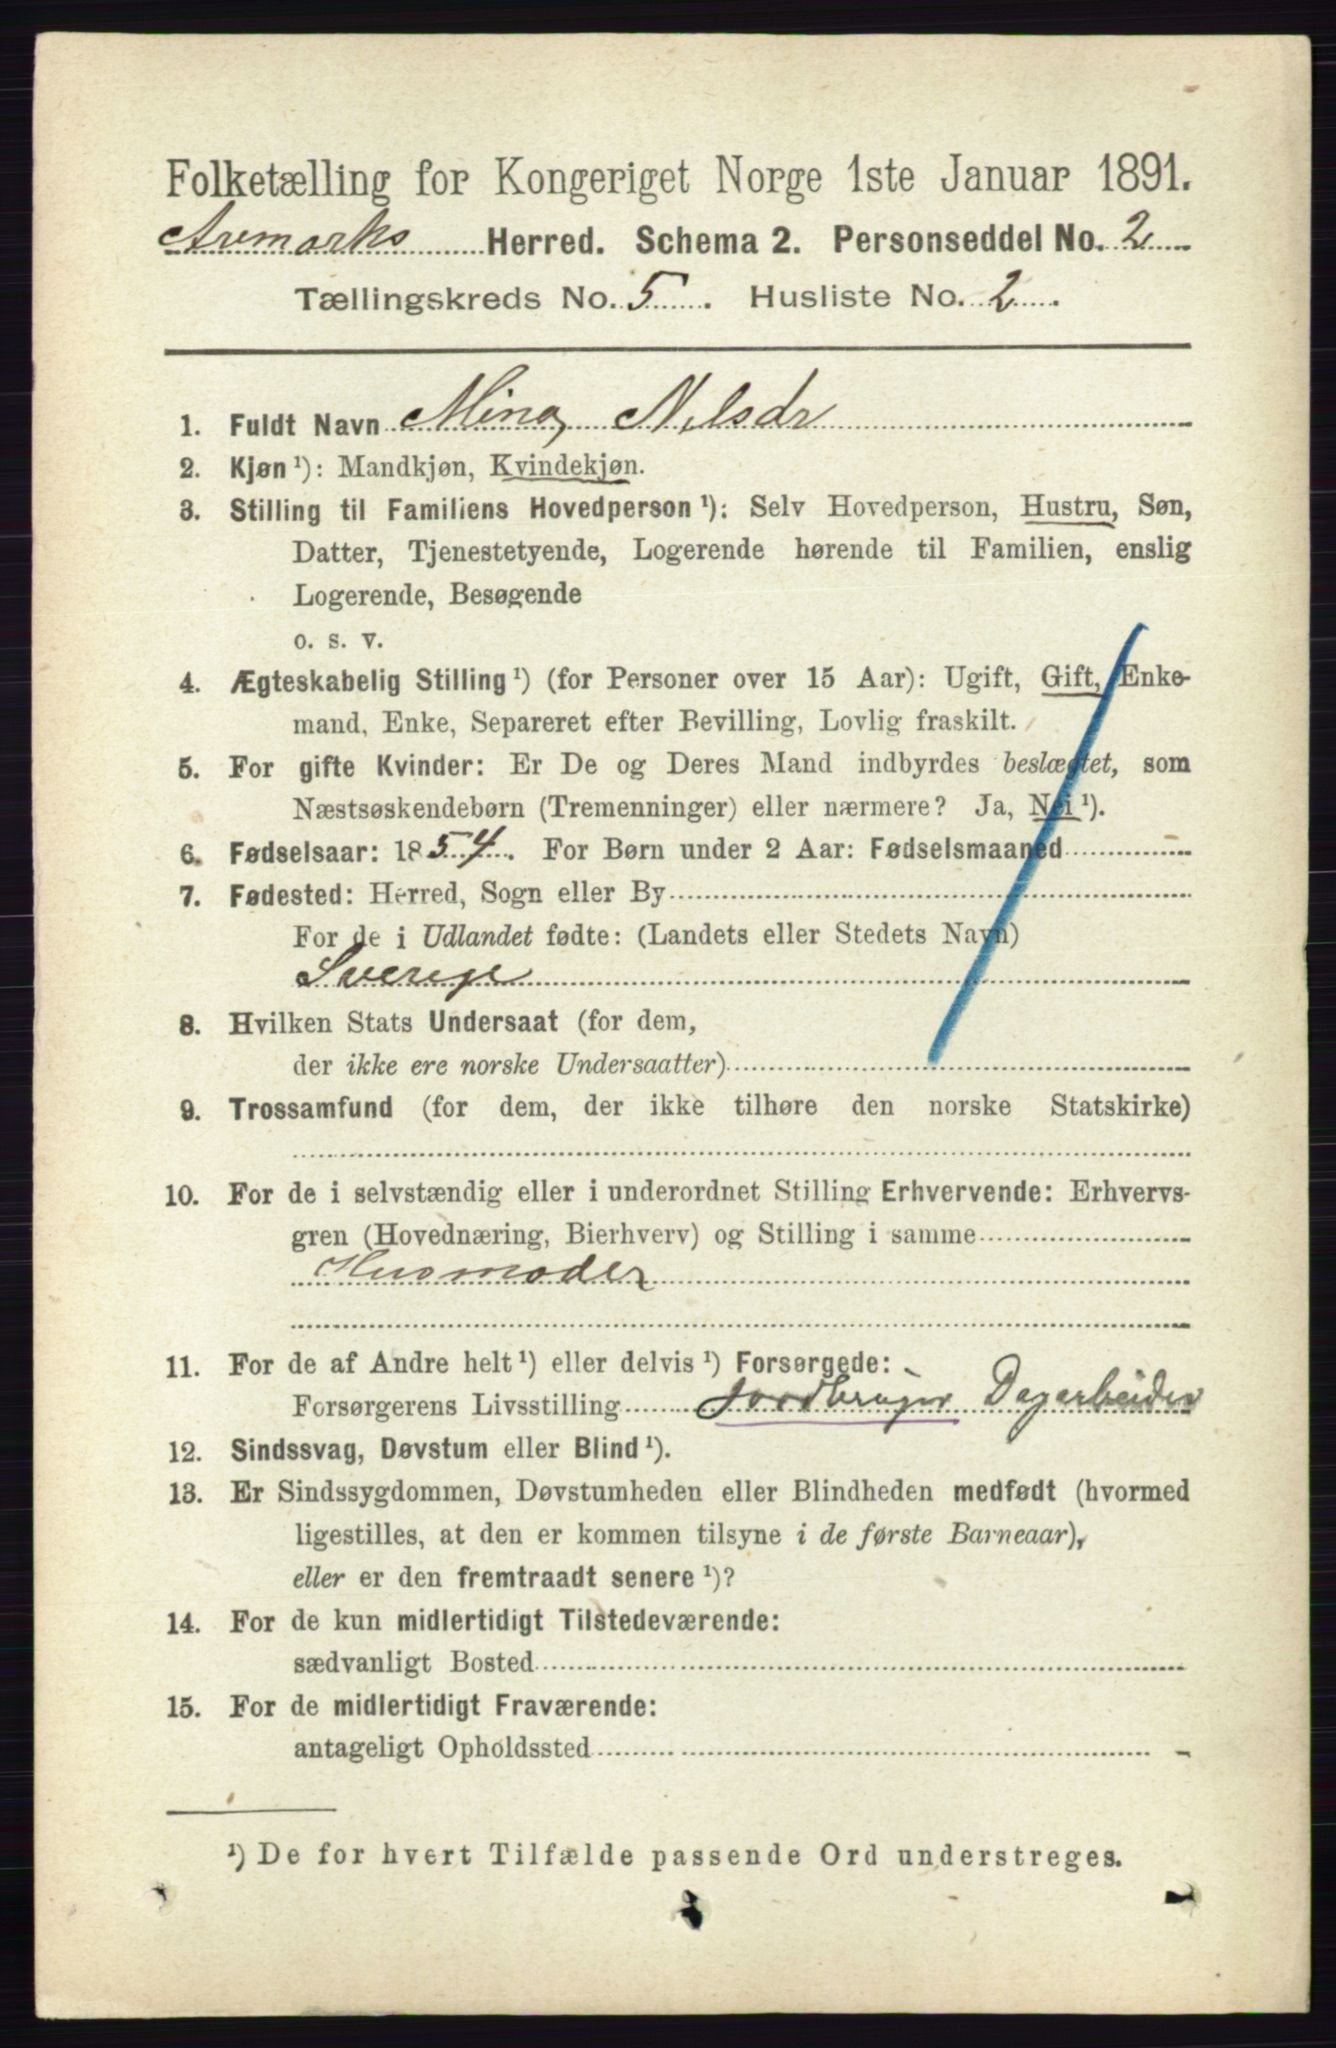 Folketælling for Kongeriget Norge 1ste Januar 1891.
Aremarks Herred. Schema 2. Personseddel No. 2
Tællingskreds No. 5. Husliste No. 2.
1. Fuldt Navn Mina Nilsdr
2. Kjøn ¹): Mandkjøn, Kvindekjøn.
3. Stilling til Familiens Hovedperson ¹): Selv Hovedperson, Hustru, Søn,
Datter, Tjenestetyende, Logerende hørende til Familien, enslig
Logerende, Besøgende
o. s. v.
4. Ægteskabelig Stilling ¹) (for Personer over 15 Aar): Ugift, Gift, Enke-
mand, Enke, Separeret efter Bevilling, Lovlig fraskilt.
5. For gifte Kvinder: Er De og Deres Mand indbyrdes beslægtet, som
Næstsøskendebørn (Tremenninger) eller nærmere? Ja, Nei ¹).
6. Fødselsaar: 1854. For Børn under 2 Aar: Fødselsmaaned
7. Fødested: Herred, Sogn eller By
For de i Udlandet fødte: (Landets eller Stedets Navn)
Sverige
8. Hvilken Stats Undersaat (for dem,
der ikke ere norske Undersaatter)
9. Trossamfund (for dem, der ikke tilhøre den norske Statskirke)
10. For de i selvstændig eller i underordnet Stilling Erhvervende: Erhvervs-
gren (Hovednæring, Bierhverv) og Stilling i samme
Husmoder
11. For de af Andre helt ¹) eller delvis ¹) Forsørgede:
Forsørgerens Livsstilling Jordbruger Dagarbeider
12. Sindssvag, Døvstum eller Blind ¹).
13. Er Sindssygdommen, Døvstumheden eller Blindheden medfødt (hvormed
ligestilles, at den er kommen tilsyne i de første Barneaar),
eller er den fremtraadt senere ¹)?
14. For de kun midlertidigt Tilstedeværende:
sædvanligt Bosted
15. For de midlertidigt Fraværende:
antageligt Opholdssted
¹) De for hvert Tilfælde passende Ord understreges.